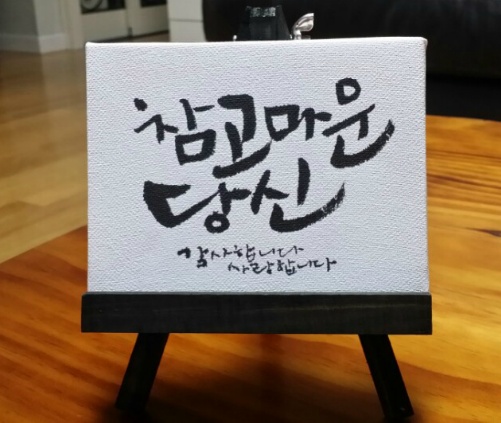 참고마운
당신
감사합니다
사랑합니다